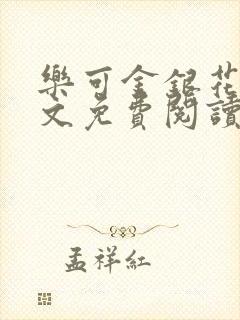 樂可金銀花
文免費閱讀
孟祥紅